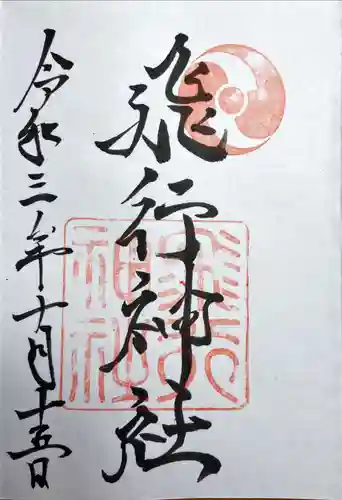 飛行神社
令和三年十月十五日
飛行
神社